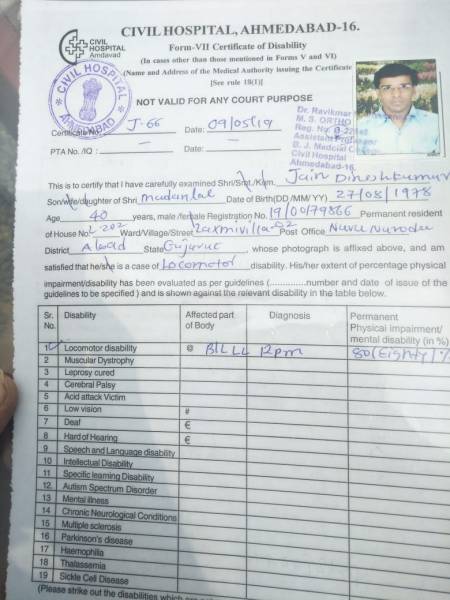 CIVIL HOSPITAL, AHMEDABAD-16.
CIVIL HOSPITAL Amdavad
Form-VII Certificate of Disability
(In cases other than those mentioned in Forms V and VI)
(Name and Address of the Medical Authority issuing the Certificate
[See rule 18(1)]
CIVIL HOSPITAL AHMEDABAD
NOT VALID FOR ANY COURT PURPOSE
Dr. Ravikmar
M. S. ORTHO
Reg. No.
Assistant Professor
B. J. Medcial
Civil Hospital
Ahmedabad-16.
Certificate No. J-66 Date: 09/05/19
PTA No. /IQ : — Date: —
This is to certify that I have carefully examined Shri/Smt./Kum. Jain Dineshkumar
Son/wife/daughter of Shri madanlal Date of Birth(DD/MM/YY) 27/08/1978
Age 40 years, male /female Registration No. 19/00/79866 Permanent resident
of House No. L-202 Ward/Village/Street Laxmivilla-02 Post Office Nava Naroda
District A'bad State Gujarat, whose photograph is affixed above, and am
satisfied that he/she is a case of Locomotor disability. His/her extent of percentage physical
impairment/disability has been evaluated as per guidelines (...............number and date of issue of the
guidelines to be specified ) and is shown against the relevant disability in the table below.
Sr. No. Disability Affected part of Body Diagnosis Permanent Physical impairment/ mental disability (in %)
1 Locomotor disability @ B/L LL PPRP 80 (Eighty) %
2 Muscular Dystrophy
3 Leprosy cured
4 Cerebral Palsy
5 Acid attack Victim
6 Low vision #
7 Deaf €
8 Hard of Hearing €
9 Speech and Language disability
10 Intellectual Disability
11 Specific learning Disability
12 Autism Spectrum Disorder
13 Mental illness
14 Chronic Neurological Conditions
15 Multiple sclerosis
16 Parkinson's disease
17 Haemophilia
18 Thalassemia
19 Sickle Cell Disease
(Please strike out the disabilities which are